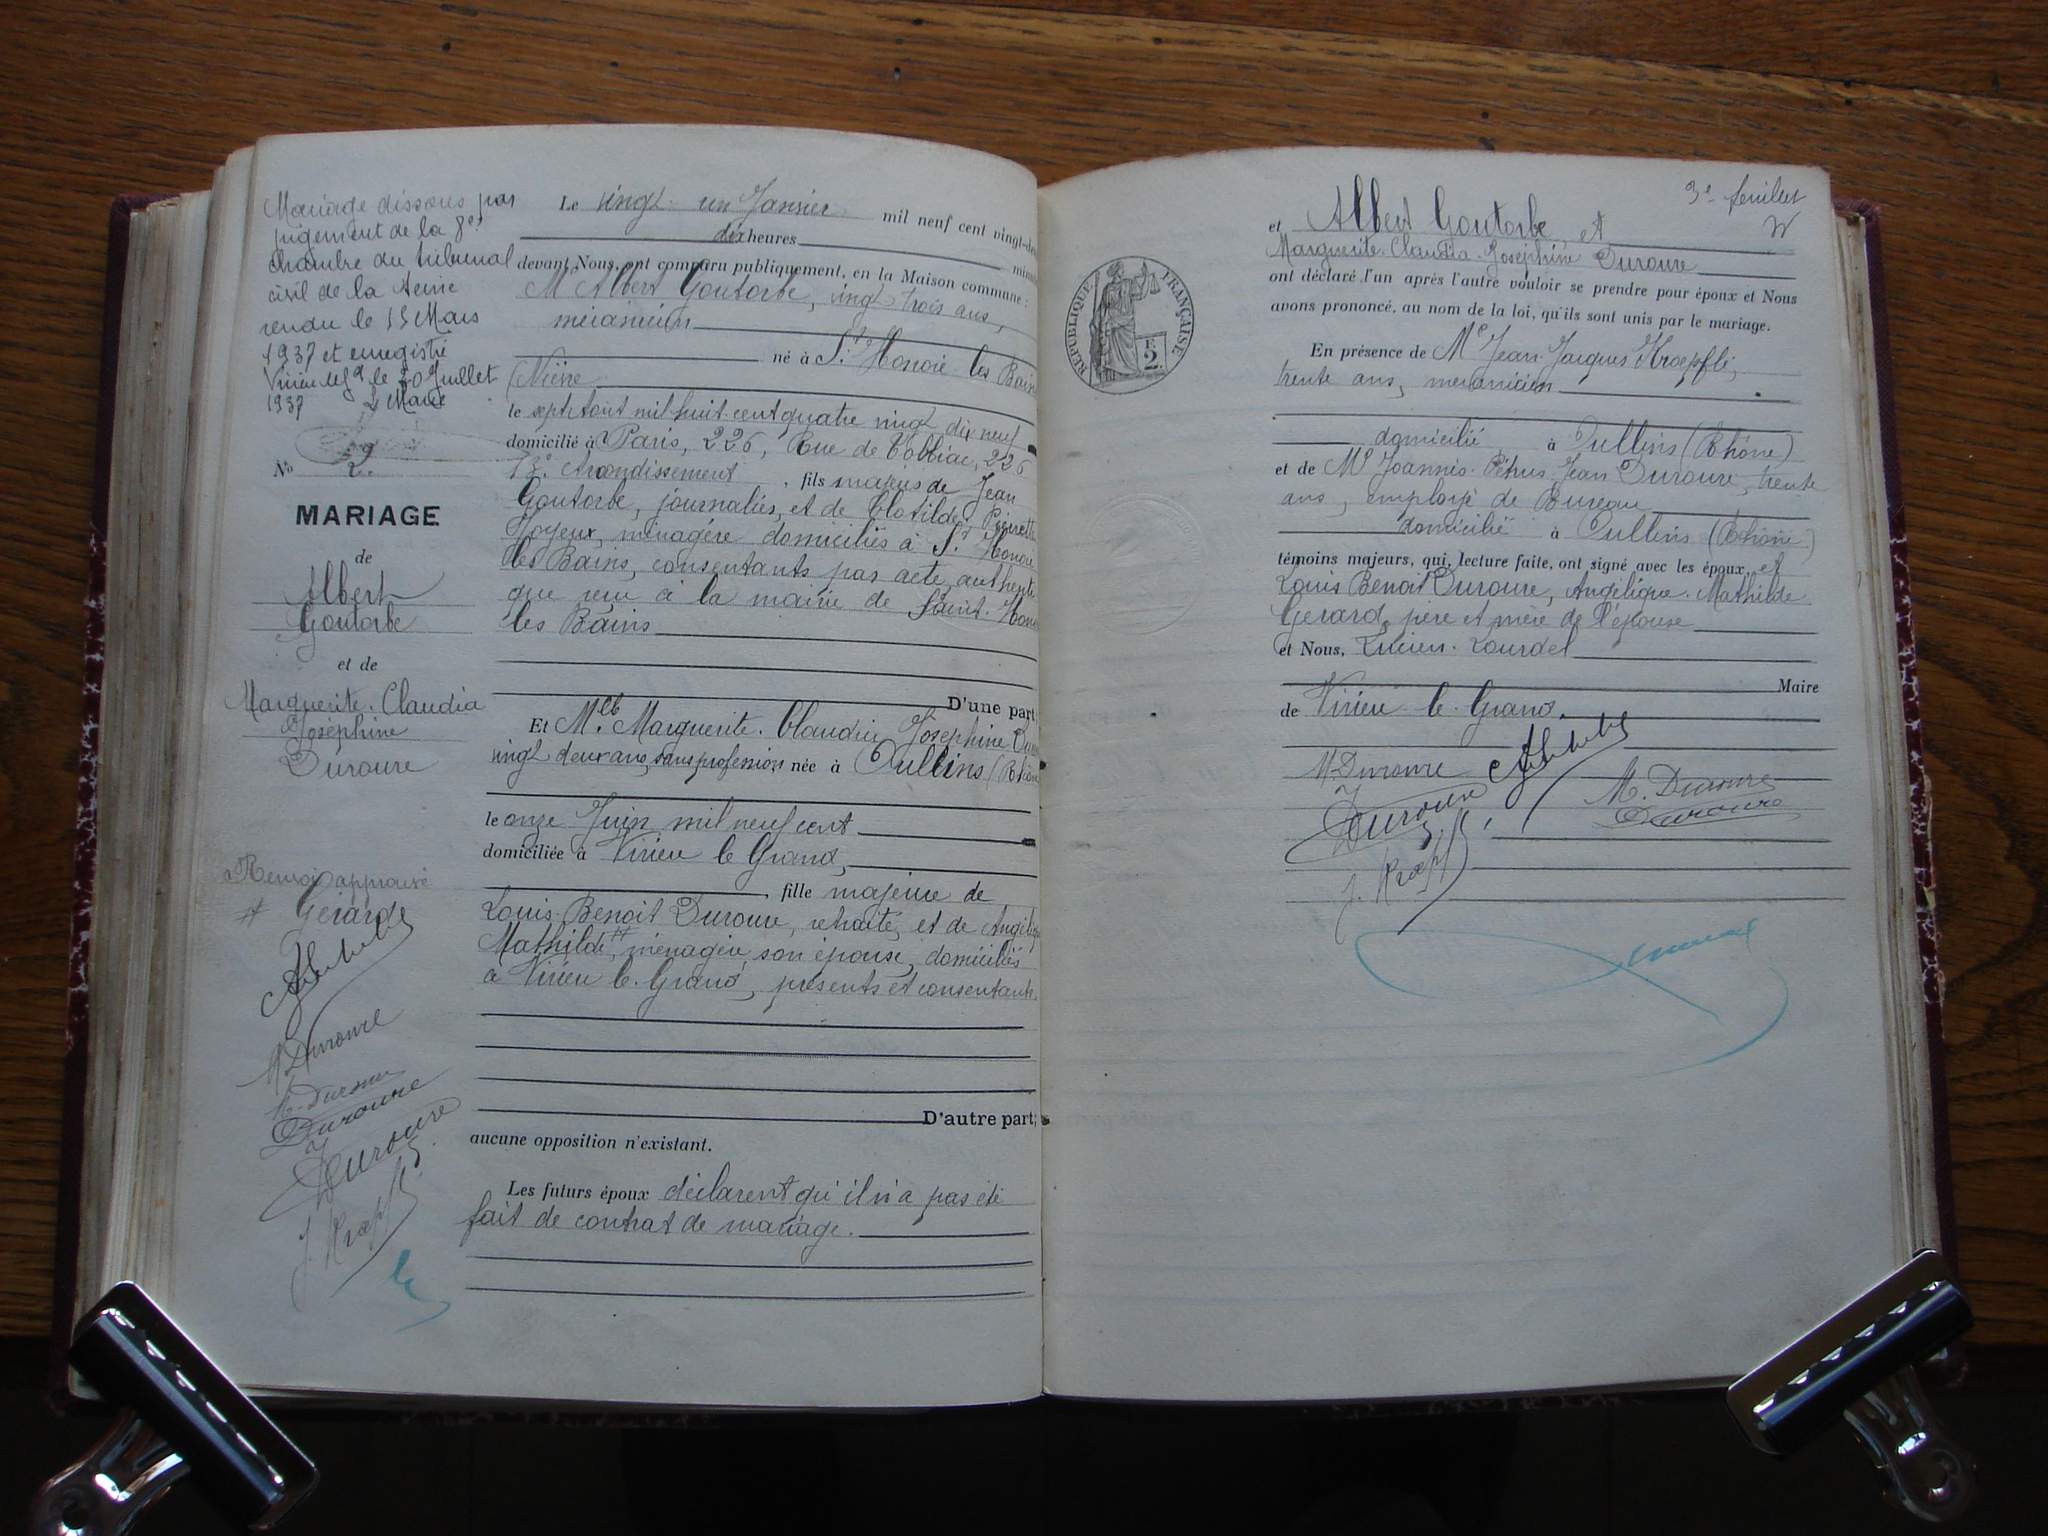 Mariage dissous par
jugement de la 8e
chambre du tribunal
civil de la Seine
rendu le 15 Mars
1937 et enregistré
Virieu le Gd le 20 Juillet
1937 Le Maire
No 2.
MARIAGE
de
Albert
Goutorbe
et de
Marguerite. Claudia
Joséphine
Duroure
Renvoi approuvé
# Gérard
M. Duroure
M. Duroure
Duroure
Duroure
J. Kraepfli
Le vingt un Janvier mil neuf cent vingt-deux
dix heures minutes
devant Nous, ont comparu publiquement, en la Maison commune :
M Albert Goutorbe, vingt trois ans,
mécanicien
né à St Honoré les Bains
(Nièvre
le sept Août mil huit cent quatre vingt dix neuf
domicilié à Paris, 226, Rue de Tolbiac, 226
13e Arrondissement , fils majeur de Jean
Goutorbe, journalier, et de Clotilde Pierrette
Joyeux, ménagère domiciliés à St Honoré
les Bains, consentants par acte authenti
que reçu à la mairie de Saint. Honoré
les Bains
D'une part;
Et Melle Marguerite. Claudia Joséphine Duroure
vingt deux ans, sans profession née à Oullins (Rhône
le onze Juin mil neuf cent
domiciliée à Virieu le Grand,
, fille majeure de
Louis. Benoit Duroure, retraité, et de Angélique
Mathilde #, ménagère son épouse, domiciliés
à Virieu le. Grand, présents et consentants.
D'autre part;
aucune opposition n'existant.
Les futurs époux déclarent qu'il n'a pas été
fait de contrat de mariage.
3e feuillet
et Albert Goutorbe et
Marguerite. Claudia. Joséphine Duroure
ont déclaré l'un après l'autre vouloir se prendre pour époux et Nous
avons prononcé, au nom de la loi, qu'ils sont unis par le mariage.
RÉPUBLIQUE FRANÇAISE
F.
2.
En présence de Mr Jean. Jacques Kraepfli,
trente ans, mécanicien
domicilié à Oullins (Rhône)
et de Mr Joannès. Pétrus Jean Duroure, trente
ans, employé de Bureau
domicilié à Oullins (Rhône)
témoins majeurs, qui, lecture faite, ont signé avec les époux, et
Louis Benoit Duroure, Angélique. Mathilde
Gérard, père et mère de l'épouse
et Nous, Lucien. Lourdel
Maire
de Virieu le Grand.
M. Duroure
M. Duroure
Duroure
Duroure
J. Kraepfli